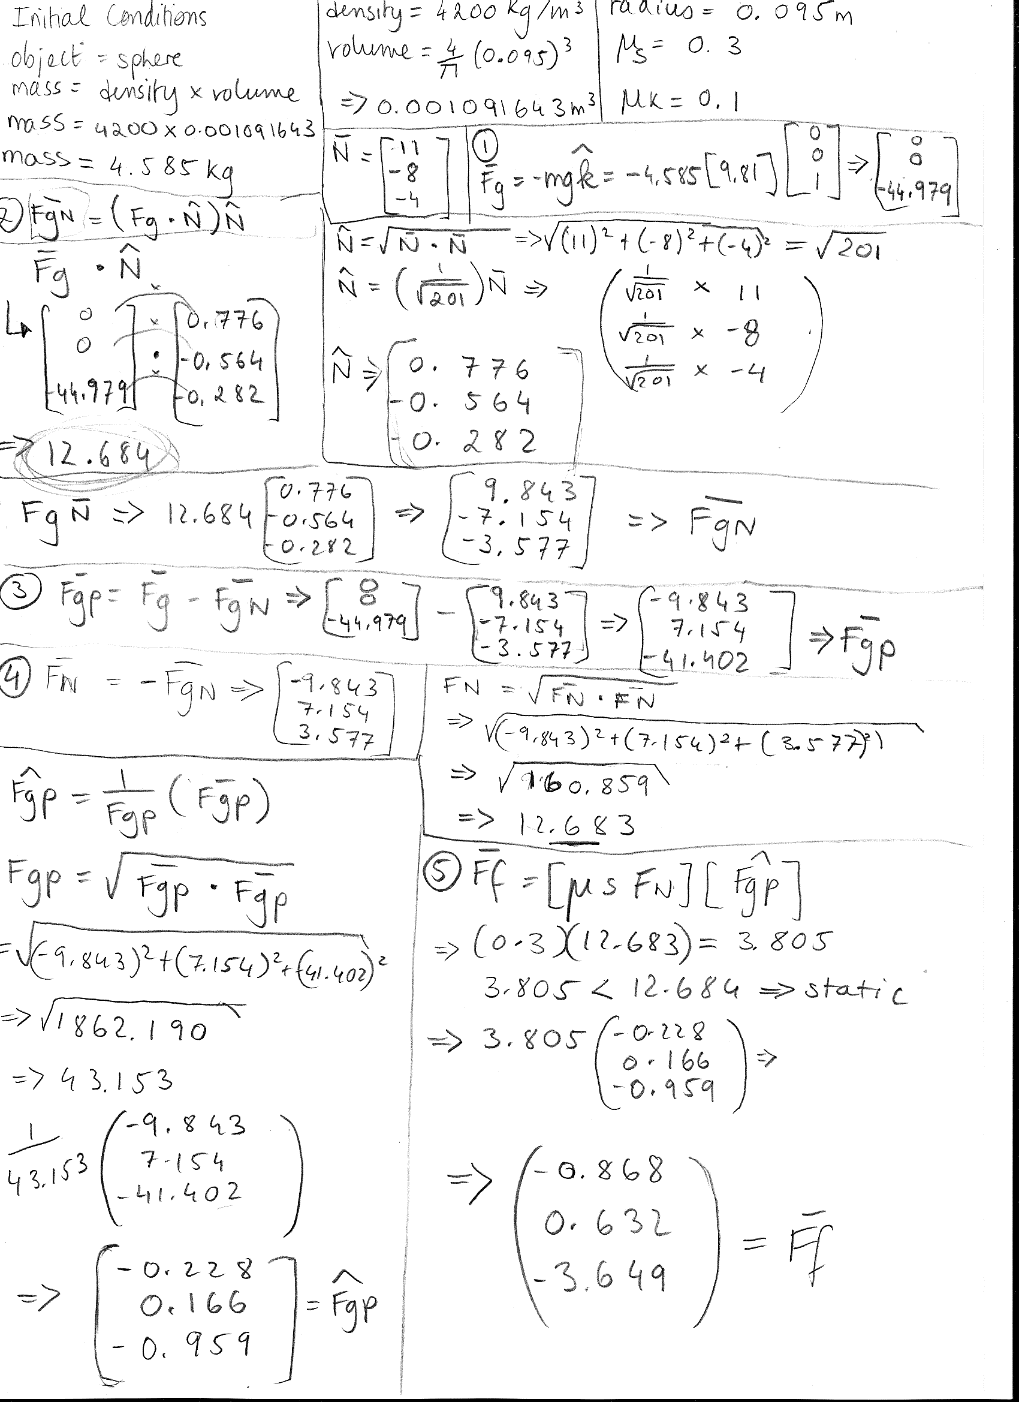 Initial Conditions
object = sphere
mass = density × volume
mass = 4200 × 0.001091643
mass = 4.585 kg
density = 4200 kg/m³
volume = 4/π (0.095)³
=> 0.001091643 m³
radius = 0.095m
μs = 0.3
μk = 0.1
N̄ = [11
-8
-4]
① F̄g = -mgk̂ = -4.585[9.81] [0 0 1] => [0 0 -44.979]
② F̄gN = (Fg · N̂)N̂
F̄g · N̂
↳ [0 0 -44.979] · [0.776 -0.564 -0.282]
=> 12.684
N̂ = √N̄ · N̄ => √(11)² + (-8)² + (-4)² = √201
N̂ = (1/√201) N̄ => (1/√201 × 11
1/√201 × -8
1/√201 × -4)
N̂ => [0.776
-0.564
-0.282]
FgN̄ => 12.684 [0.776 -0.564 -0.282] => [9.843 -7.154 -3.577] => F̄gN
③ F̄gp = F̄g - F̄gN => [0 0 -44.979] - [9.843 -7.154 -3.577] => [-9.843 7.154 -41.402] => F̄gp
④ F̄N = -F̄gN => [-9.843 7.154 3.577]
FN = √F̄N · F̄N
=> √(-9.843)² + (7.154)² + (3.577)²
=> √160.859
=> 12.683
F̂gp = 1/Fgp (F̄gp)
Fgp = √F̄gp · F̄gp
= √(-9.843)² + (7.154)² + (-41.402)²
=> √1862.190
=> 43.153
1/43.153 (-9.843
7.154
-41.402)
=> [-0.228
0.166
-0.959] = F̂gp
⑤ F̄f = [μs FN] [F̂gp]
=> (0.3)(12.683) = 3.805
3.805 < 12.684 => static
=> 3.805 (-0.228 0.166 -0.959) =>
=> (-0.868
0.632
-3.649) = F̄f